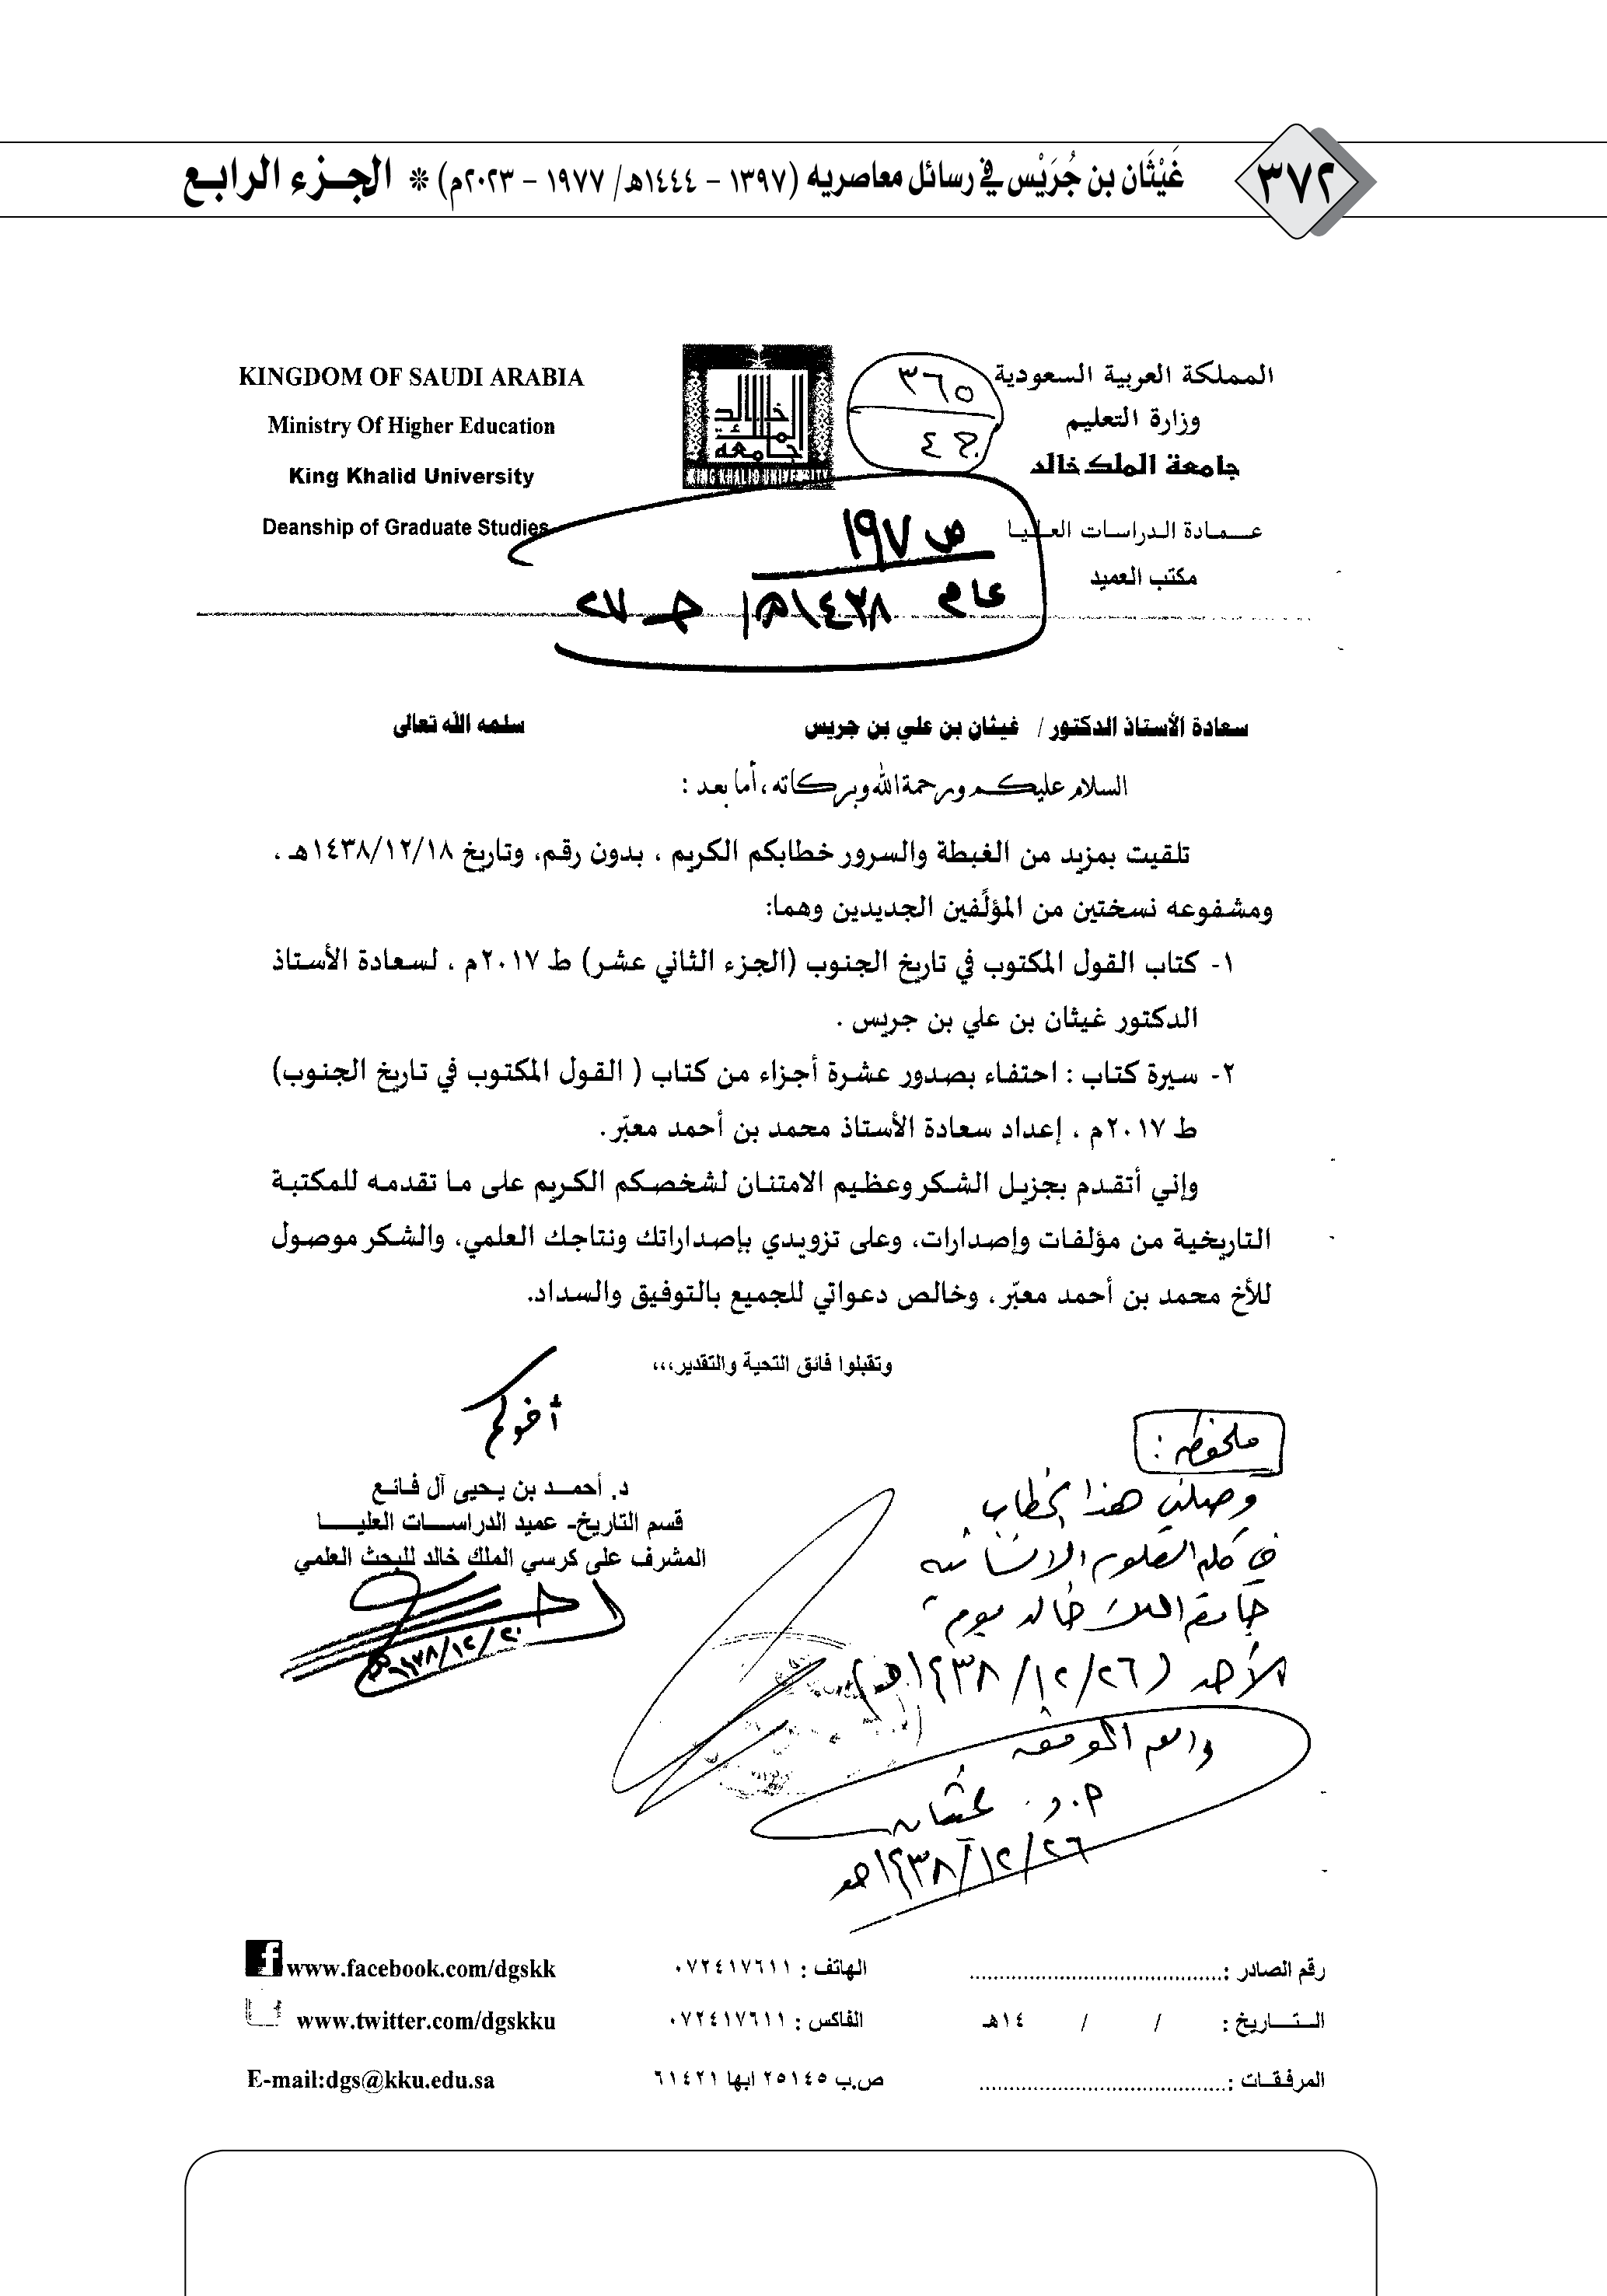 ٣٧٢
غَيْثَان بن جُرَيْس في رسائل معاصريه (١٣٩٧ - ١٤٤٤هـ/ ١٩٧٧ - ٢٠٢٣م) * الجزء الرابع
المملكة العربية السعودية
وزارة التعليم
جامعة الملك خالد
عمادة الدراسات العليا
مكتب العميد
٣٦٥
ج ٤
خالد
الملك
جامعة
KING KHALID UNIVERSITY
KINGDOM OF SAUDI ARABIA
Ministry Of Higher Education
King Khalid University
Deanship of Graduate Studies
ص ١٩٧
عام ١٤٣٨هـ/ جـ ٢٧
سعادة الأستاذ الدكتور / غيثان بن علي بن جريس سلمه الله تعالى
السلام عليكم ورحمة الله وبركاته ، أما بعد :
تلقيت بمزيد من الغبطة والسرور خطابكم الكريم ، بدون رقم، وتاريخ ١٤٣٨/١٢/١٨هـ ،
ومشفوعه نسختين من المؤلَّفين الجديدين وهما:
١- كتاب القول المكتوب في تاريخ الجنوب (الجزء الثاني عشر) ط ٢٠١٧م ، لسعادة الأستاذ
الدكتور غيثان بن علي بن جريس .
٢- سيرة كتاب : احتفاء بصدور عشرة أجزاء من كتاب ( القول المكتوب في تاريخ الجنوب)
ط ٢٠١٧م ، إعداد سعادة الأستاذ محمد بن أحمد معبّر.
وإني أتقدم بجزيل الشكر وعظيم الامتنان لشخصكم الكريم على ما تقدمه للمكتبة
التاريخية من مؤلفات وإصدارات، وعلى تزويدي بإصداراتك ونتاجك العلمي، والشكر موصول
للأخ محمد بن أحمد معبّر، وخالص دعواتي للجميع بالتوفيق والسداد.
وتقبلوا فائق التحية والتقدير،،،
أخوكم
د. أحمد بن يحيى آل فائع
قسم التاريخ- عميد الدراسات العليا
المشرف على كرسي الملك خالد للبحث العلمي
١٤٣٨/١٢/٢٠هـ
ملحوظة :
وصلني هذا الخطاب
في كلية العلوم الإنسانية
جامعة الملك خالد يوم
الأحد (١٤٣٨/١٢/٢٦هـ)
والله الموفق
أ.د. غيثان
١٤٣٨/١٢/٢٦هـ
رقم الصادر :
التاريخ : / / ١٤هـ
المرفقات :
الهاتف : ٠٧٢٤١٧٦١١
الفاكس : ٠٧٢٤١٧٦١١
ص.ب ٢٥١٤٥ ابها ٦١٤٢١
www.facebook.com/dgskk
www.twitter.com/dgskku
E-mail:dgs@kku.edu.sa